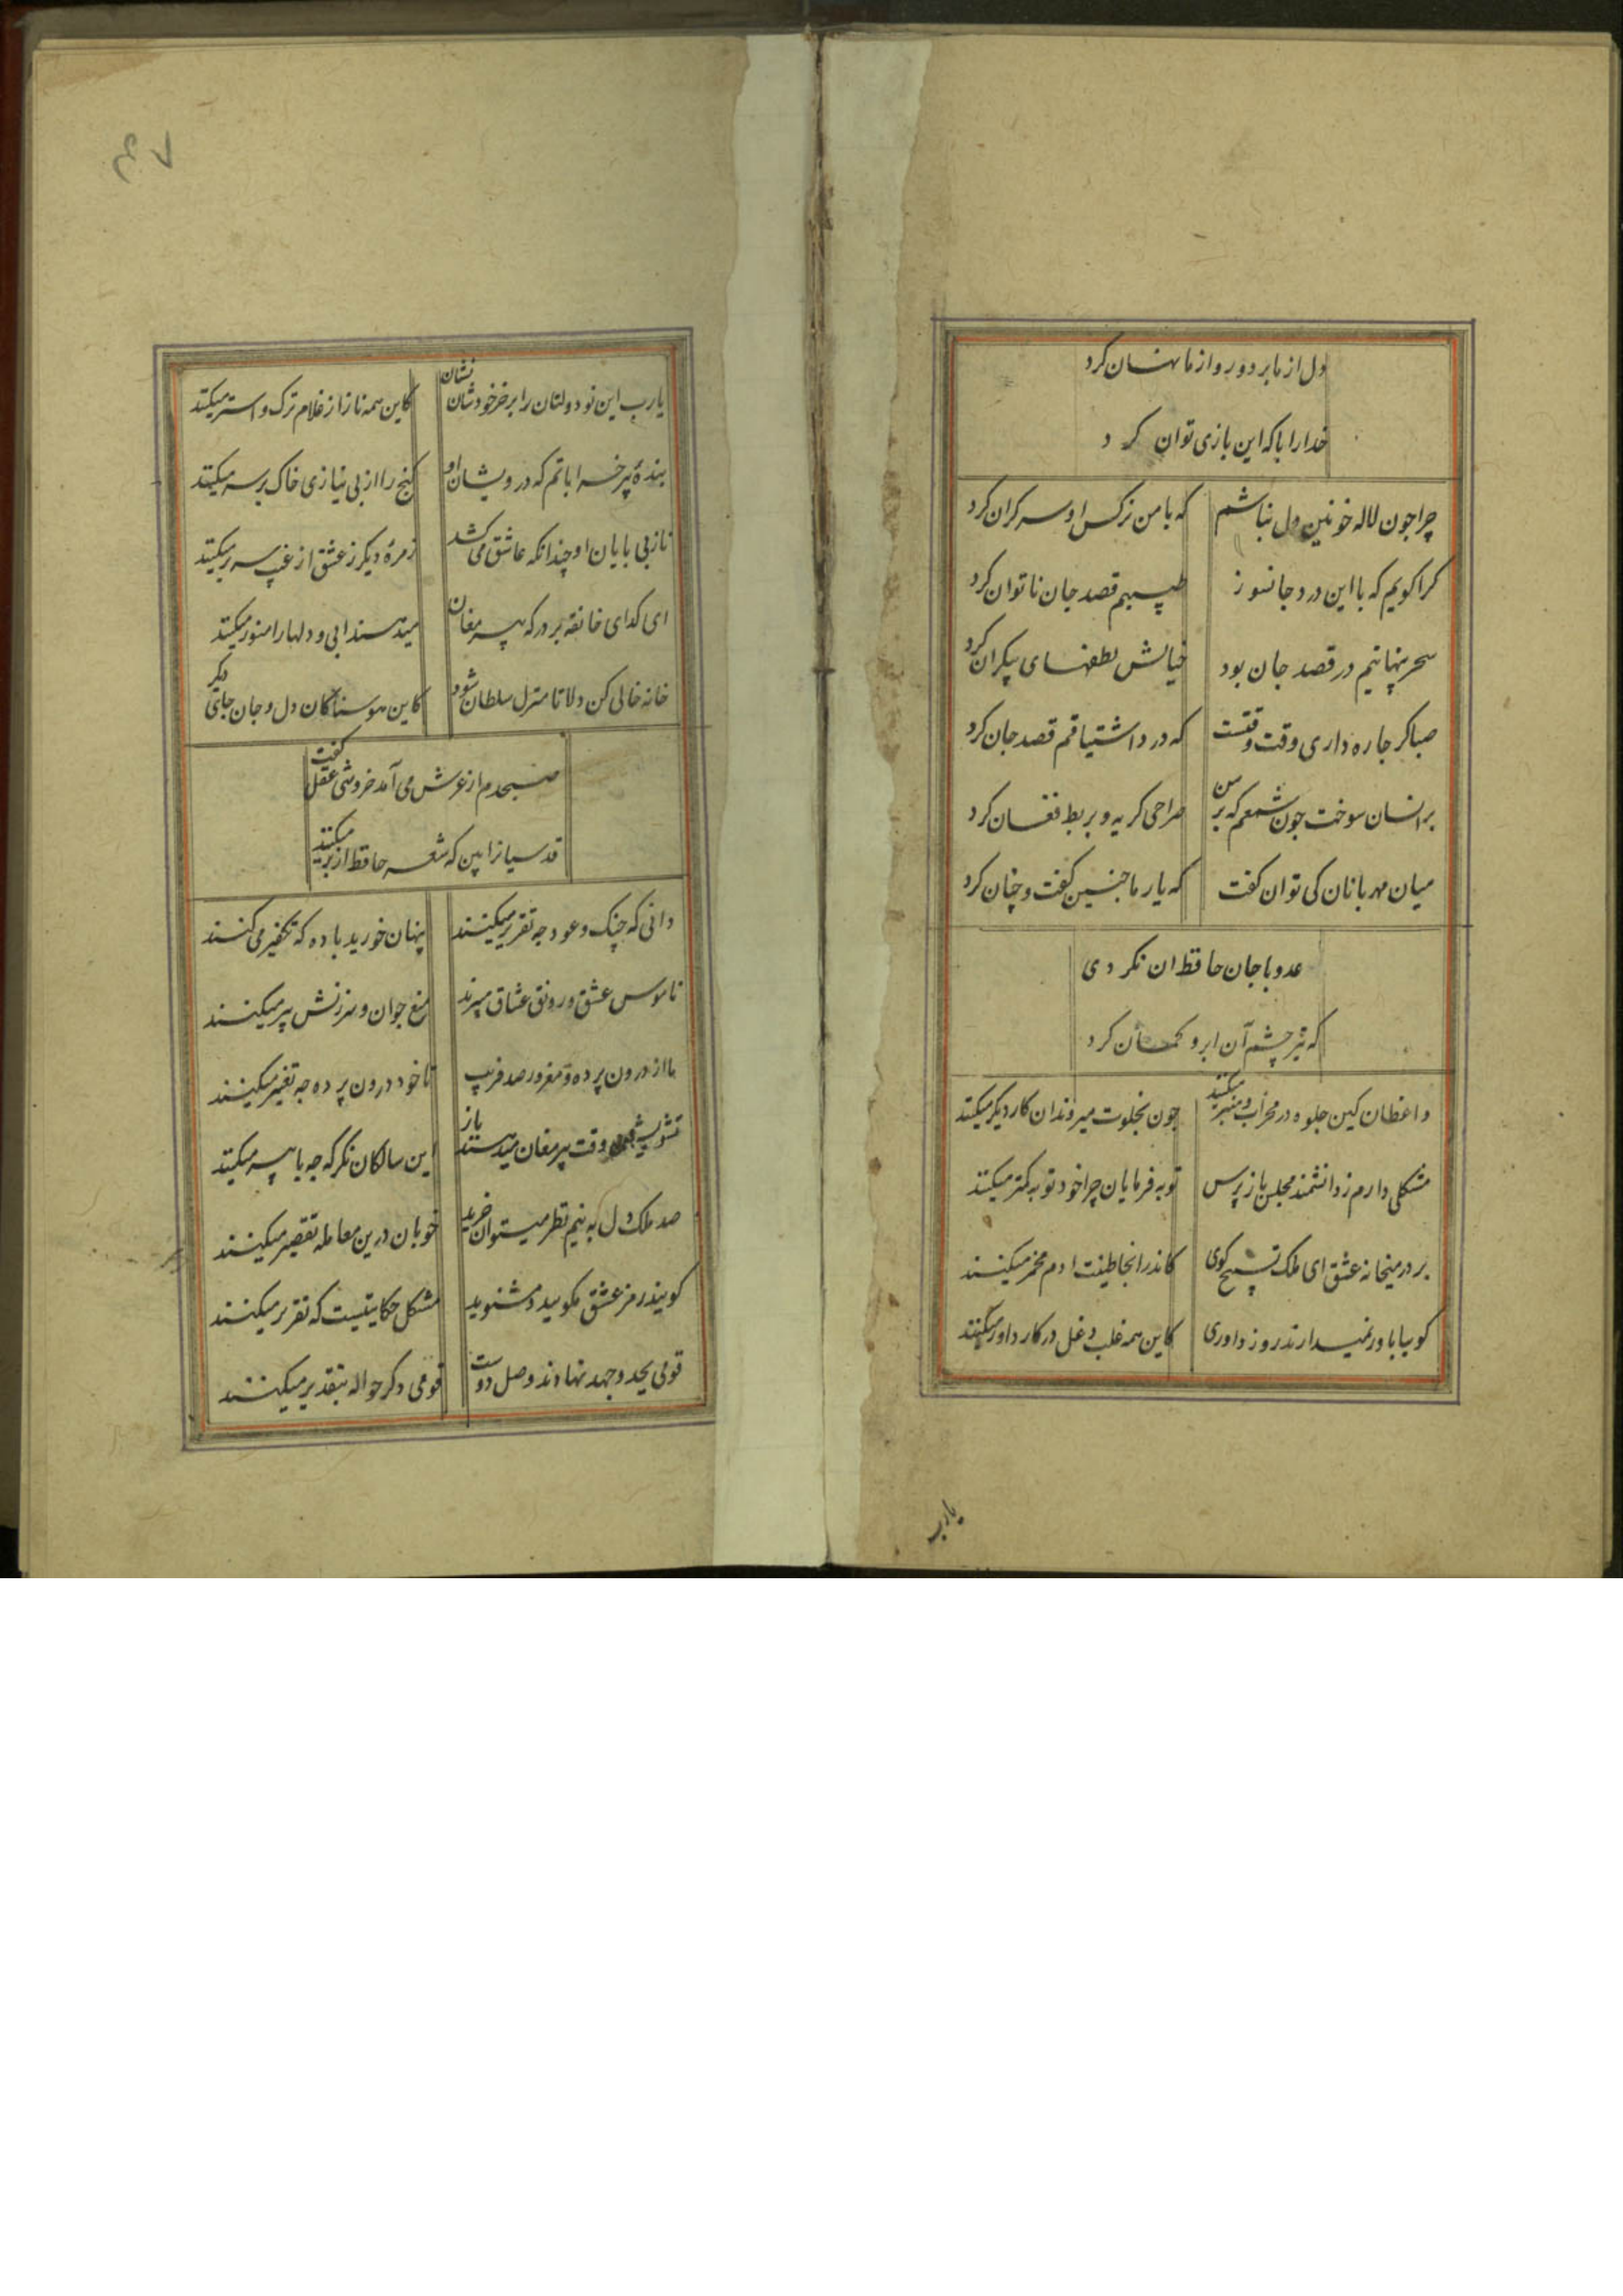 دل از ما برد و رو از ما نهان کرد
خدا را با که این بازی توان کرد
چرا جون لاله خونین دل نباشم که با من نرکس او سر کران کرد
کرا کویم که با این درد جانسوز طبیبم قصد جان ناتوان کرد
سحر تنهاییم در قصد جان بود خیالش لطفهای بیکران کرد
صبا کر جاره داری وقت وقتست که درد اشتیاقم قصد جان کرد
برانسان سوخت جون شمعم که بر من صراحی کریه و بربط فغان کرد
میان مهربانان کی توان کفت که یار ما جنین کفت و چنان کرد
عدو با جان حافظ ان نکردی
که تیر چشم آن ابرو کمان کرد
واعظان کین جلوه در محراب و منبر میکنند جون بخلوت میروند ان کار دیکر میکنند
مشکلی دارم ز دانشمند مجلس باز پرس توبه فرمایان چرا خود توبه کمتر میکنند
بر در میخانه عشق ای ملک تسبیح کوی کاندر انجا طینت ادم مخمر میکنند
کوییا باور نمیدارند روز داوری کاین همه قلب و دغل در کار داور میکنند
یارب
یارب این نو دولتان را بر خر خودشان نشان کاین همه ناز از غلام ترک و استر میکنند
بندهٔ پیر خراباتم که درویشان او کنج را از بی نیازی خاک بر سر میکنند
ناز بی بایان او چندانکه عاشق می کشد زمرهٔ دیکر ز عشق از غیب سر بر میکنند
ای کدای خانقه بر در که پیر مغان میدهند ابی و دلها را منور میکنند
خانه خالی کن دلا تا منزل سلطان شود کاین هوسناکان دل و جان جای دیکر
صبحدم از عرش می آمد خروشی عقل کفت
قدسیانرا بین که شعر حافظ از بر میکنند
دانی که چنک و عود جه تقریر میکنند پنهان خورید باده که تکفیر می کنند
ناموس عشق و رونق عشاق میبرند منع جوان و سرزنش پیر میکنند
ما از درون پرده و مغرور صد فریب تا خود درون پرده جه تغییر میکنند
تشویش وقت پیر مغان میدهند باز این سالکان نکر که جه با پیر میکنند
صد ملک دل به نیم نظر میتوان خرید خوبان درین معامله تقصیر میکنند
کویند رمز عشق مکویید و مشنوید مشکل حکایتیست که تقریر میکنند
قومی بجد و جهد نهادند وصل دوست قومی دکر حواله بتقدیر میکنند